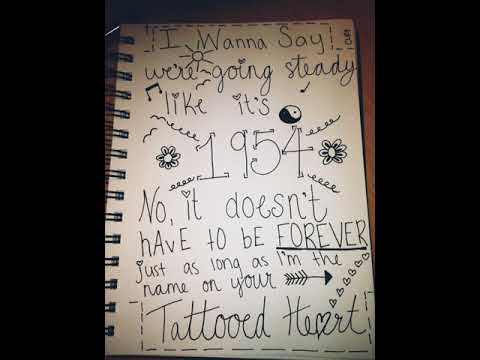 I Wanna Say
we're going steady
like it's
1954
No, it doesn't
hAvE to bE FOREVER
just as long as I'm the
name on your
Tattooed Heart